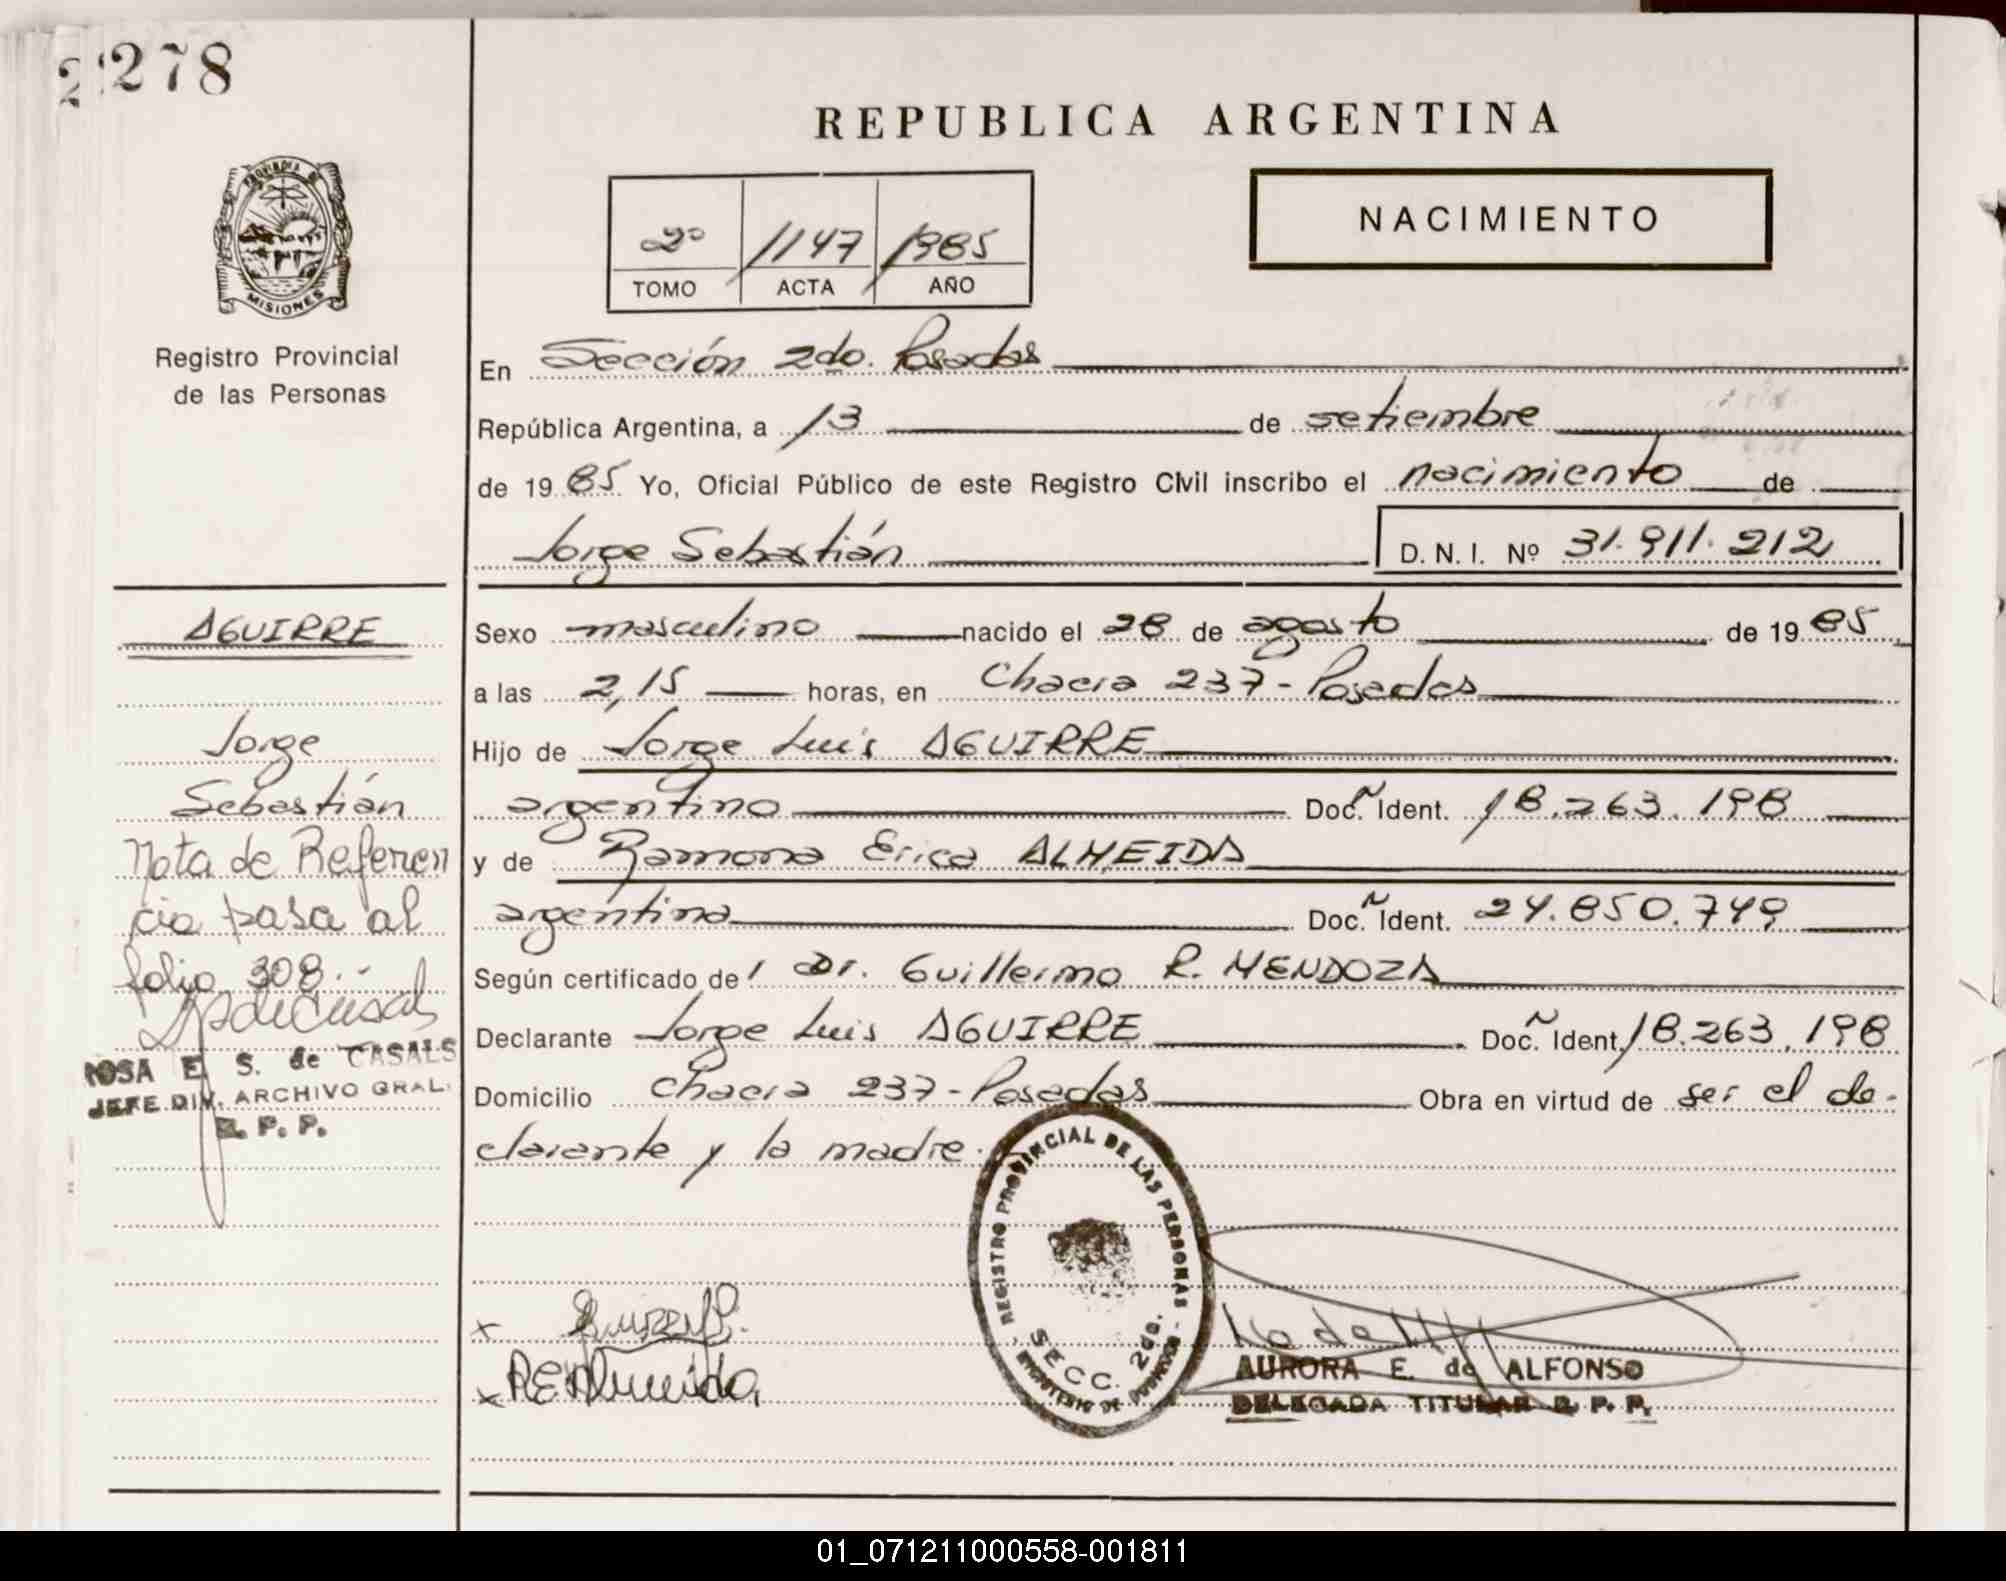 278
REPUBLICA ARGENTINA
PROVINCIA DE
MISIONES
Registro Provincial
de las Personas
2º 1147 1985
TOMO ACTA AÑO
NACIMIENTO
En Sección 2da. Posadas
República Argentina, a 13 de setiembre
de 1985 Yo, Oficial Público de este Registro Civil inscribo el nacimiento de
Jorge Sebastián D. N. I. Nº 31.911.212
AGUIRRE
Jorge
Sebastián
Nota de Referen
cia pasa al
folio 308.-
ROSA E. S. de CASALS
JEFE DIV. ARCHIVO GRAL.
R. P. P.
Sexo masculino nacido el 28 de agosto de 1985
a las 2,15 horas, en Chacra 237-Posadas
Hijo de Jorge Luis AGUIRRE
argentino Doc. Ident. 18.263.198
y de Ramona Erica ALMEIDA
argentina Doc. Ident. 24.850.749
Según certificado de l Dr. Guillermo R. MENDOZA
Declarante Jorge Luis AGUIRRE Doc. Ident. 18.263.198
Domicilio Chacra 237-Posadas Obra en virtud de ser el de-
clarante y la madre.
REGISTRO PROVINCIAL DE LAS PERSONAS
SECC. 2da.
MINISTERIO DE GOBIERNO
x
x REAlmeida
AURORA E. de ALFONSO
DELEGADA TITULAR R. P. P.
01_071211000558-001811